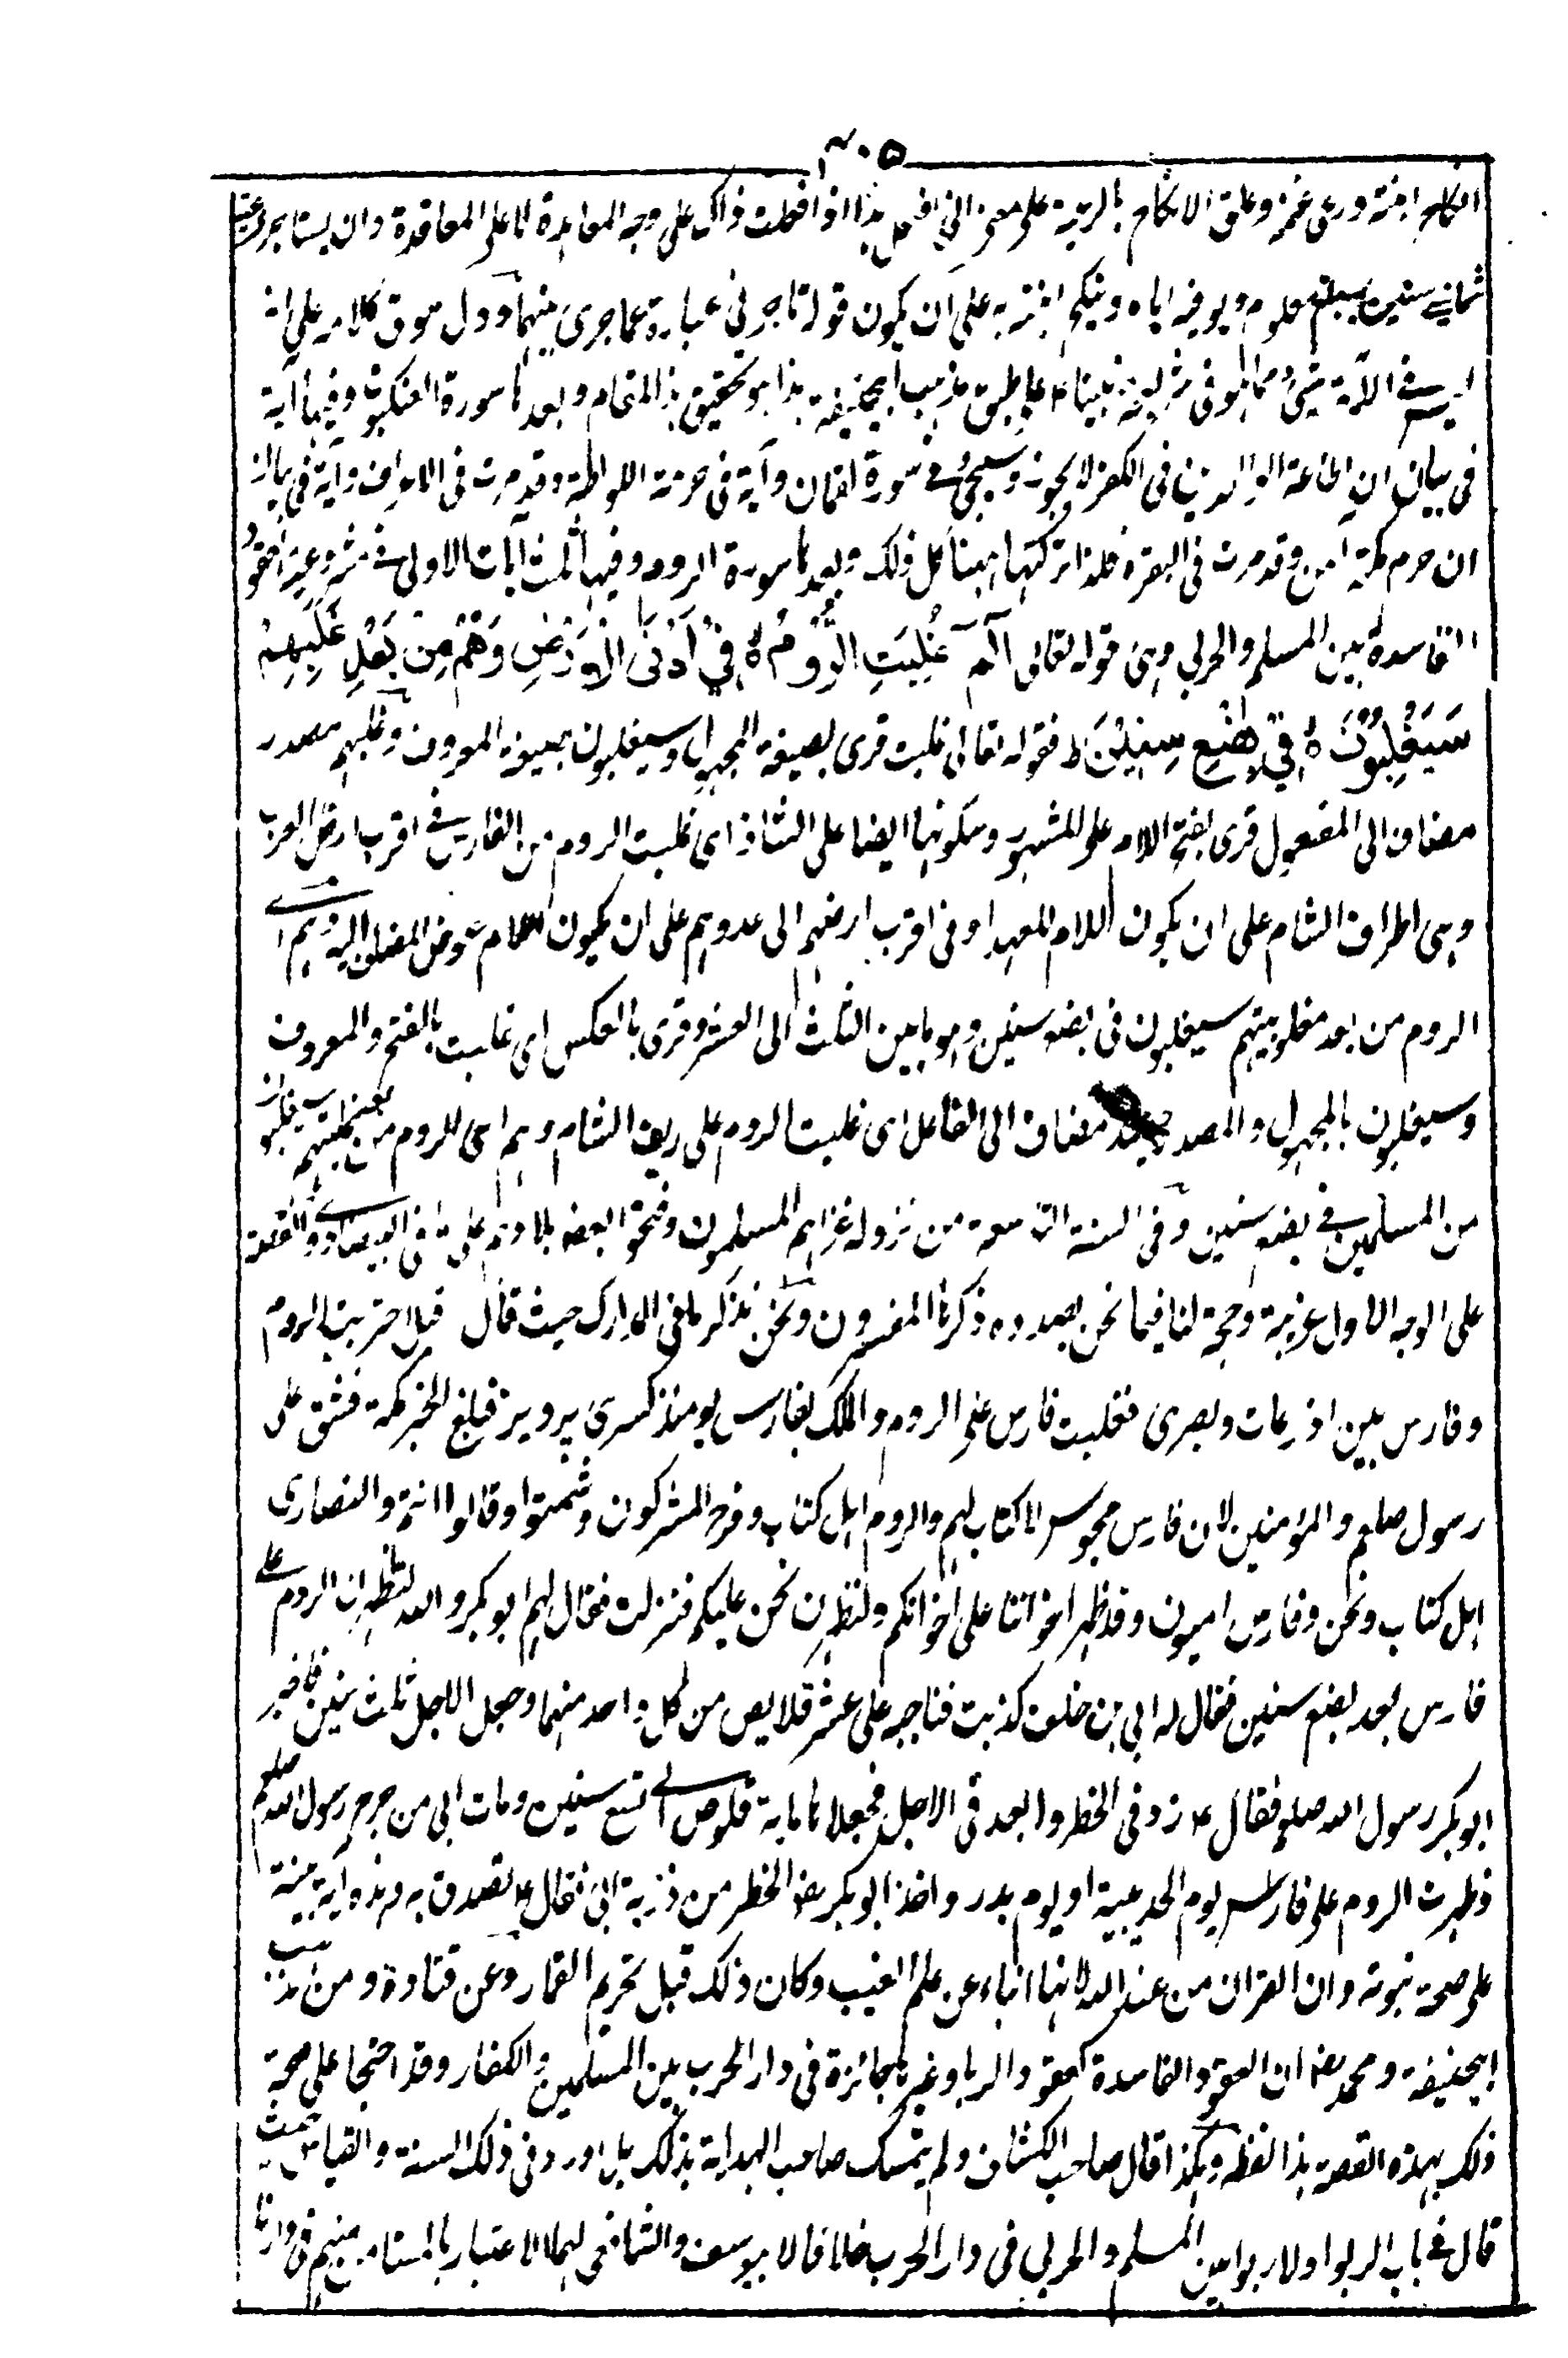 ٣٠٥
انكاح ابنة ورعى غنمه وعلق الانكاح بالرعية على معنى انى افعل هذا اذا فعلت ذاك على وجه المعاهدة لا على المعاقدة وان يستاجره
ثمانى سنين بمبلغ معلوم ويوفيه اياه وينكح ابنته به على ان يكون قوله تاجرنى عبارة عما جرى بينهما ودل سوق كلامه على انه
ليس فى الآية شئ مما هو فى شريعة نبينا ء م على طبق مذهب ابيحنيفة هذا هو تحقيق هذا المقام وبعدها سورة العنكبوت وفيها آية
فى بيان ان اطاعة الوالدين فى الكفر لا يجوز وسيجئ فى سورة لقمان وآية فى حرمة اللواطة وقد مرت فى الاعراف وآية فى بيان
ان حرم مكة آمن وقد مرت فى البقرة فلذا تركتها ههنا كل ذلك وبعدها سورة الروم وفيها ثلث آيات الاولى فى مشروعية العقود
الفاسدة بين المسلم والحربى وهى قوله تعالى الٓمٓ غُلِبَتِ الرُّوْمُ ۙ فِیْٓ اَدْنَى الْاَرْضِ وَهُمْ مِنْ بَعْدِ غَلَبِهِمْ
سَيَغْلِبُوْنَ ۙ فِیْ بِضْعِ سِنِيْنَ ط فقوله تعالى غلبت قرى بصيغة المجهول وسيغلبون بصيغة المعروف وغلبهم مصدر
مضاف الى المفعول قرى بفتح اللام على المشهور وسكونها ايضا على الشاذ اى غلبت الروم من الفارس فى اقرب ارض العرب
وهى اطراف الشام على ان يكون اللام للعهد او فى اقرب ارضهم الى عدوهم على ان يكون اللام عوض المضاف اليه وهم اى
الروم من بعد مغلوبيتهم سيغلبون فى بضع سنين وهو ما بين الثلث الى العشر وقرى بالعكس اى غلبت بالفتح والمعروف
وسيغلبون بالمجهول والمصدر حينئذ مضاف الى الفاعل اى غلبت الروم على ريف الشام وهم اى الروم من بعد غلبتهم سيغلبون
من المسلمين فى بضع سنين وفى السنة التاسعة من نزوله غزاهم المسلمون وفتحوا بعض بلادهم على ما فى البيضاوى والقصة
على الوجه الاول غريبة وحجة لنا فيما نحن بصدده ذكرها المفسرون ونحن نذكر ما فى المدارك حيث قال قيل احتربت الروم
وفارس بين اذرعات وبصرى فغلبت فارس على الروم والملك بفارس يومئذ كسرى پرويز فبلغ الخبر مكة فشق على
رسول صلعم والمؤمنين لان فارس مجوس لا كتاب لهم والروم اهل كتاب وفرح المشركون وشمتوا وقالوا انتم والنصارى
اهل كتاب ونحن وفارس اميون وقد ظهر اخواننا على اخوانكم ولنظهرن نحن عليكم فنزلت فقال لهم ابو بكر والله لتظهرن الروم على
فارس بعد بضع سنين فقال له ابى بن خلف كذبت فناحبه على عشر قلايص من كل واحد منهما وجعل الاجل ثلث سنين فاخبر
ابو بكر رسول الله صلعم فقال ء م زد فى الخطر وابعد فى الاجل فجعلاها مائة قلوص الى تسع سنين ومات ابى من جرح رسول الله صلعم
فظهرت الروم على فارس يوم الحديبية او يوم بدر واخذ ابو بكر رض الخطر من ذرية ابى فقال ء م تصدق به وهذه آية بينة
على صحة نبوته وان القرآن من عند الله لانها انباء عن علم الغيب وكان ذلك قبل تحريم القمار وعن قتادة ومن مذهب
ابيحنيفة ومحمد رض ان العقود الفاسدة كعقود الربا وغيرها جائزة فى دار الحرب بين المسلمين والكفار وقد احتجا على صحة
ذلك بهذه القصة هذا لفظه وهكذا قال صاحب الكشاف ولم يتمسك صاحب الهداية بذلك بل اورد فى ذلك السنة والقياس حيث
قال فى باب الربوا ولا ربوا بين المسلم والحربى فى دار الحرب خلافا لابيوسف والشافعى لهما الاعتبار بالمستامن منهم فى دارنا